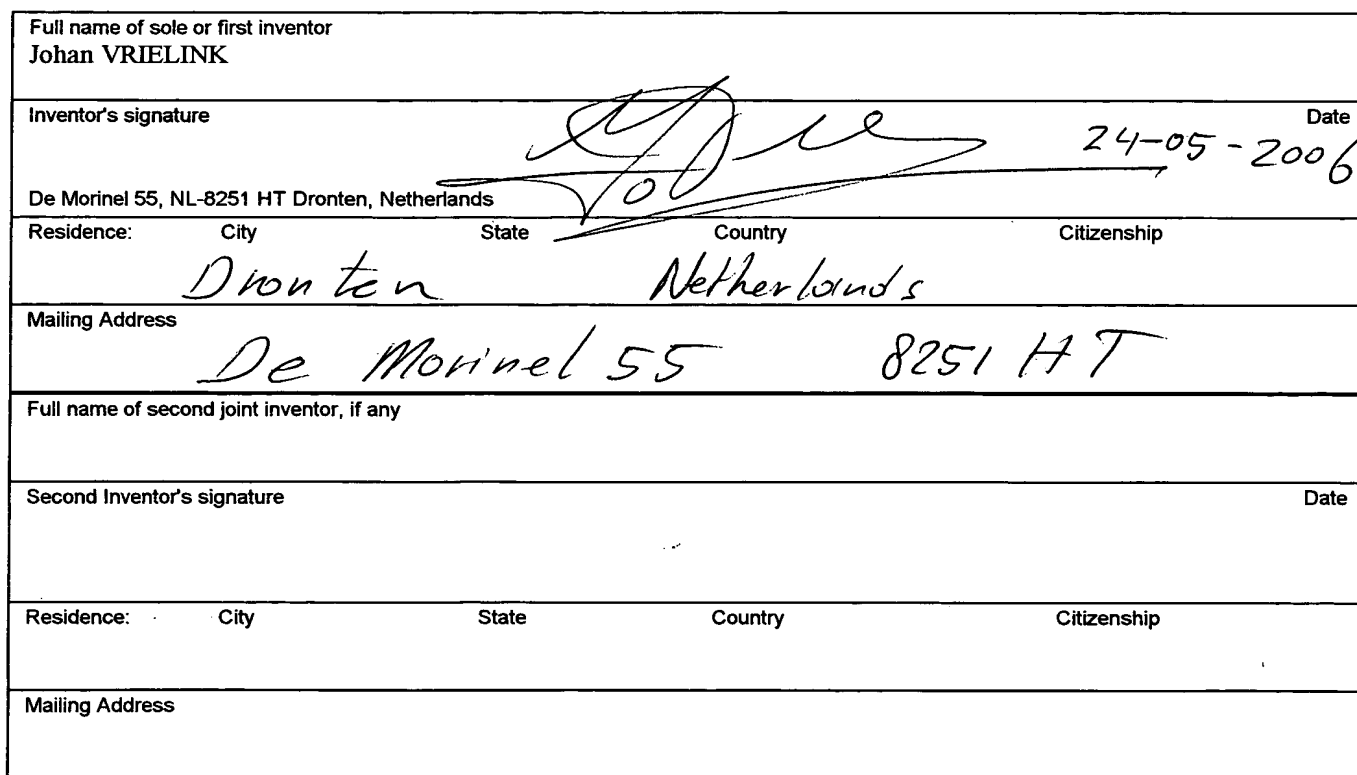 Full name of sole or first inventor
Johan VRIELINK
Inventor's signature Date
24-05-2006
De Morinel 55, NL-8251 HT Dronten, Netherlands
Residence: City State Country Citizenship
Dronten Netherlands
Mailing Address
De Morinel 55 8251 HT
Full name of second joint inventor, if any
Second Inventor's signature Date
Residence: City State Country Citizenship
Mailing Address